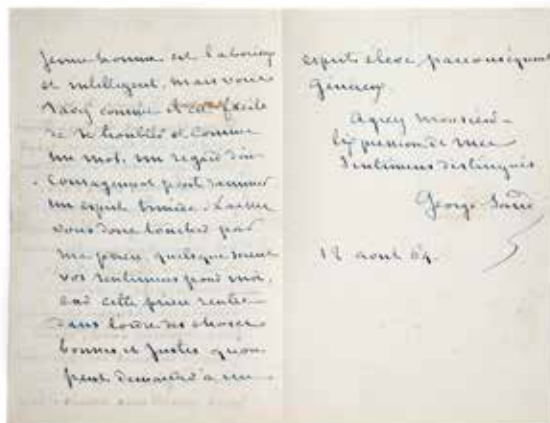 jeune homme est laborieux
et intelligent, mais vous
savez comme il est facile
de se troubler et comme
un mot, un regard d'en-
couragement peut ranimer
un esprit timide. Laissez
vous donc toucher par
ma prière, quelque soient
vos sentiments pour moi,
car cette prière rentre
dans l'ordre des choses
bonnes et justes qu'on
peut demander à un
esprit élevé, par conséquent
généreux.
Agréez Monsieur
l'expression de mes
sentimens distingués.
George Sand
18 aout 64.